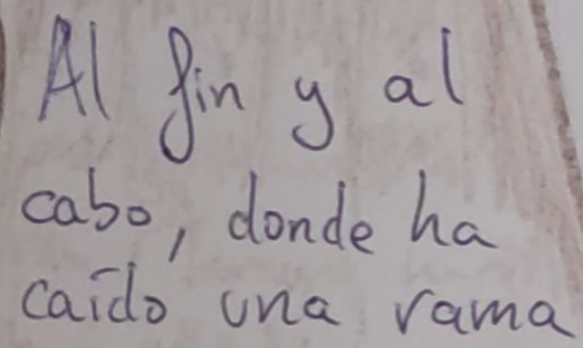 Al fin y al
cabo, donde ha
caído una rama